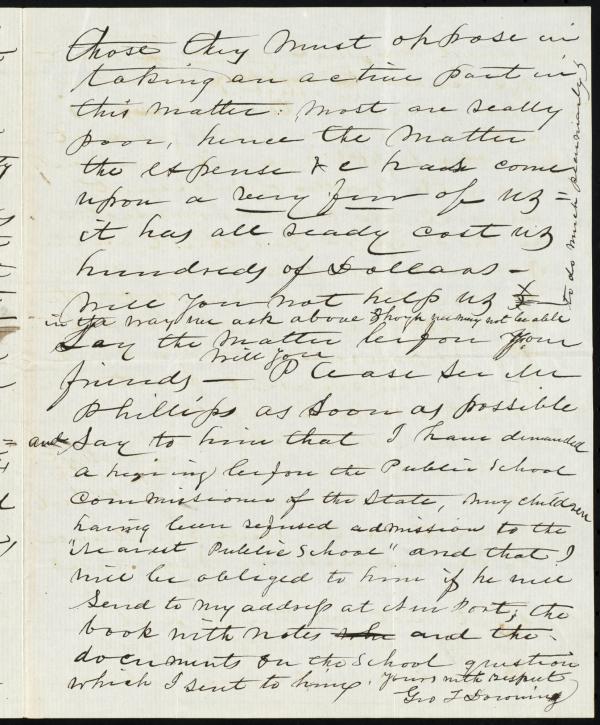 those they must oppose in
taking an active part in
this matter: most are really
poor, hence the matter
the expense &c has come
upon a very few of us =
it has all ready cost us
hundreds of Dollars –
will you not help us
in the way we ask above though you may not be able
to do much pecuniarily
Lay the matter before your
friends — will you Please see Mr
Phillips as soon as possible
and say to him that I have demanded
a hearing before the Public School
Commissioner of the State, my children
having been refused admission to the
"Nearest Public School" and that I
will be obliged to him if he will
send to my address at New Port, the
book with notes and the
documents on the School question
which I sent to him. Yours with respect
Geo T Downing